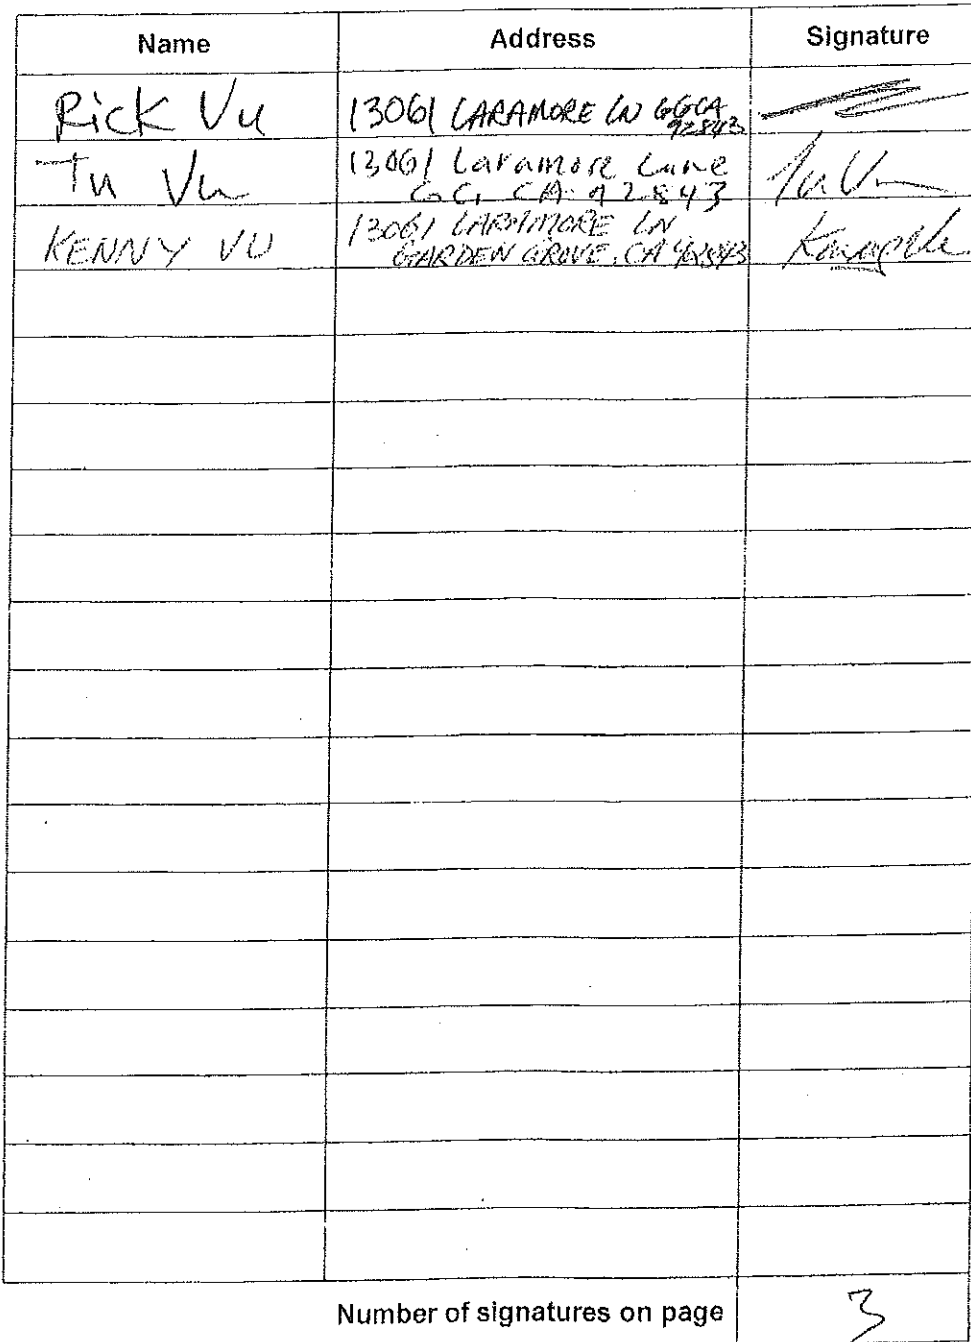 Name Address Signature
Rick Vu 13061 LARAMORE LN GG CA
92843
Tu Vu 13061 Laramore Lane
GG, CA 92843 Tu Vu
KENNY VU 13061 LARAMORE LN
GARDEN GROVE, CA 92843
Number of signatures on page 3